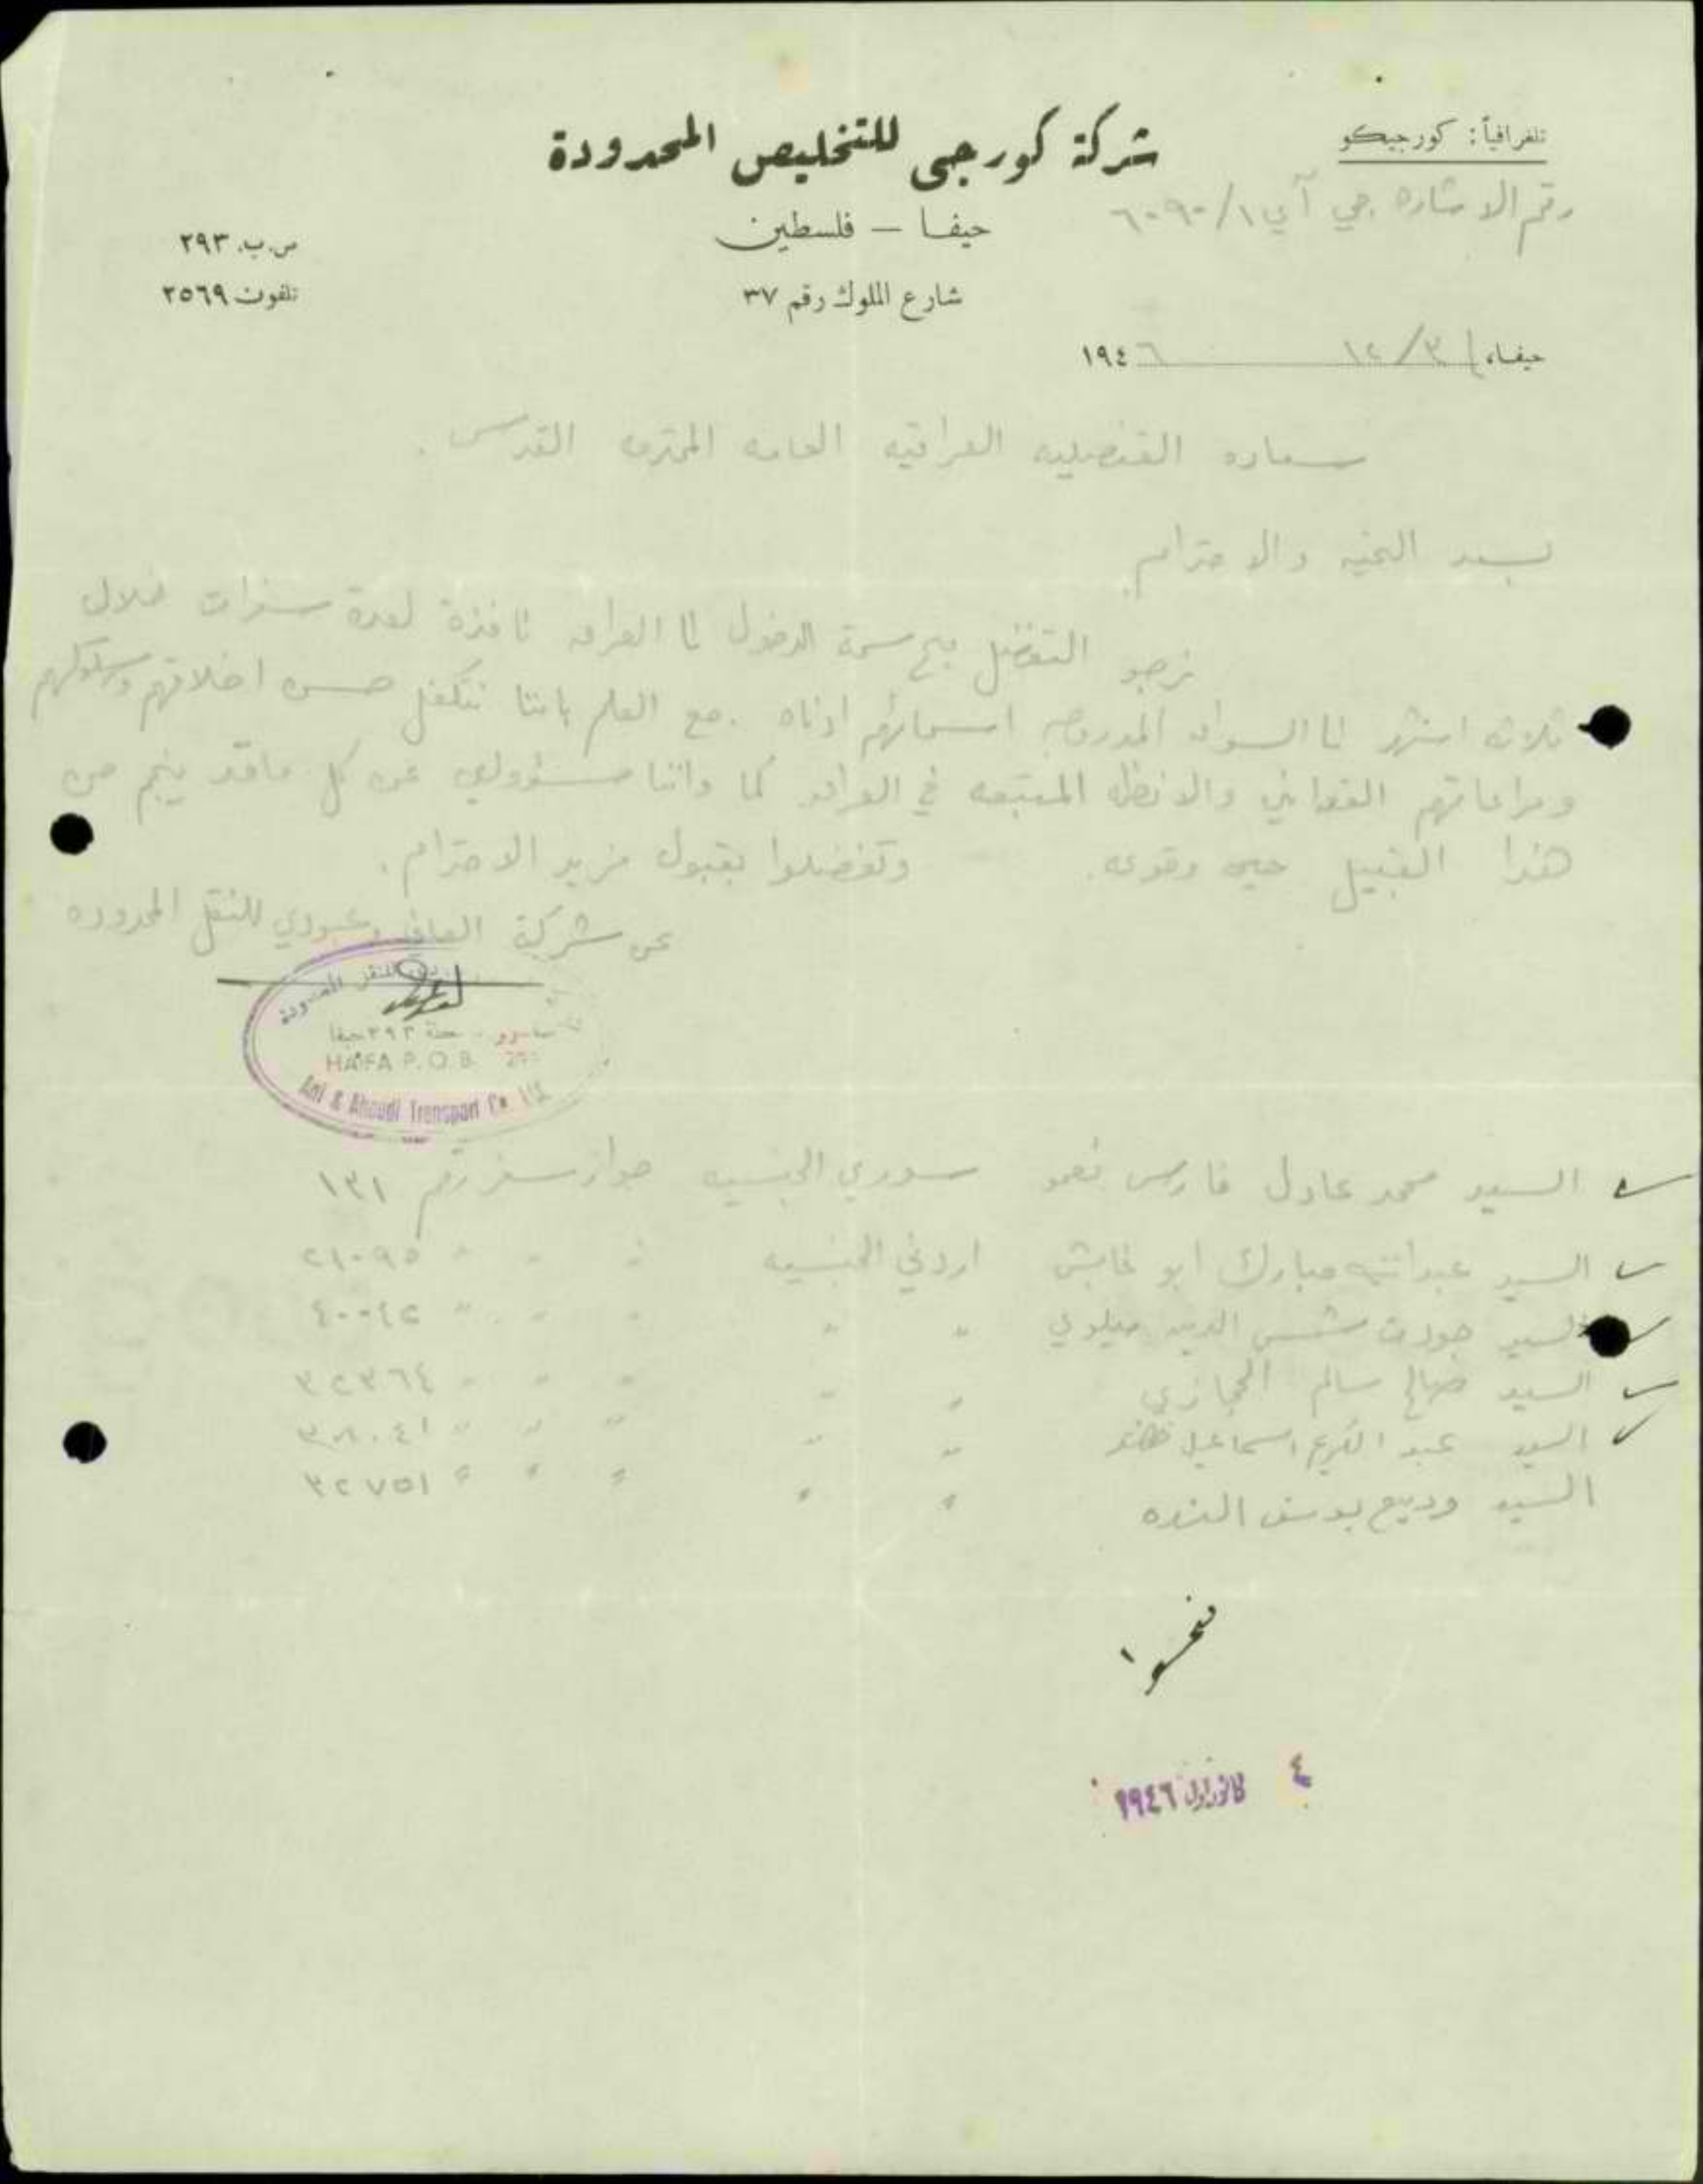 تلغرافياً: كورجيكو
شركة كورجي للتخليص المحدودة
رقم الاشاره جي آي ٦٠٩٠/١
حيفا — فلسطين
ص.ب. ٢٩٣
شارع الملوك رقم ٣٧
تلفون ٢٥٦٩
حيفا، ٣/١٢ ١٩٤٦
سعاده القنصليه العراقيه العامه المحترمه القدس.
بعد التحيه والاحترام
نرجو التفضل بمنح سمة الدخول الى العراق نافذة لعدة سفرات خلال
ثلاث اشهر الى السواق المدرجه اسمائهم ادناه. مع العلم باننا نتكفل حسن اخلاقهم وسلوكهم
ومراعاتهم القوانين والانظمه المتبعه في العراق كما واننا مسؤولين عن كل ما قد ينجم من
هذا القبيل حين وقوعه. وتفضلوا بقبول مزيد الاحترام.
عن شركة العاني وعبودي للنقل المحدوده
للنقل المحدودة
٢٩٣ حيفا
HAIFA P.O.B. 293
Ani & Aboudi Transport Co. Ltd.
السيد محمد عادل فارس نعمو سوري الجنسيه جواز سفر رقم ١٣١
السيد عبدالله مبارك ابو غابش اردني الجنسيه " " " ٢١٠٩٥
السيد جودت شمس الدين ميلوي " " " " " ٤٠٠٤٢
السيد صالح سالم الحجازي " " " " " ٣٢٣٦٤
السيد عبد الكريم اسماعيل " " " " " ٣٨٠٤١
السيد وديع يوسف " " " " " ٣٢٧٥١
٤ كانون اول ١٩٤٦